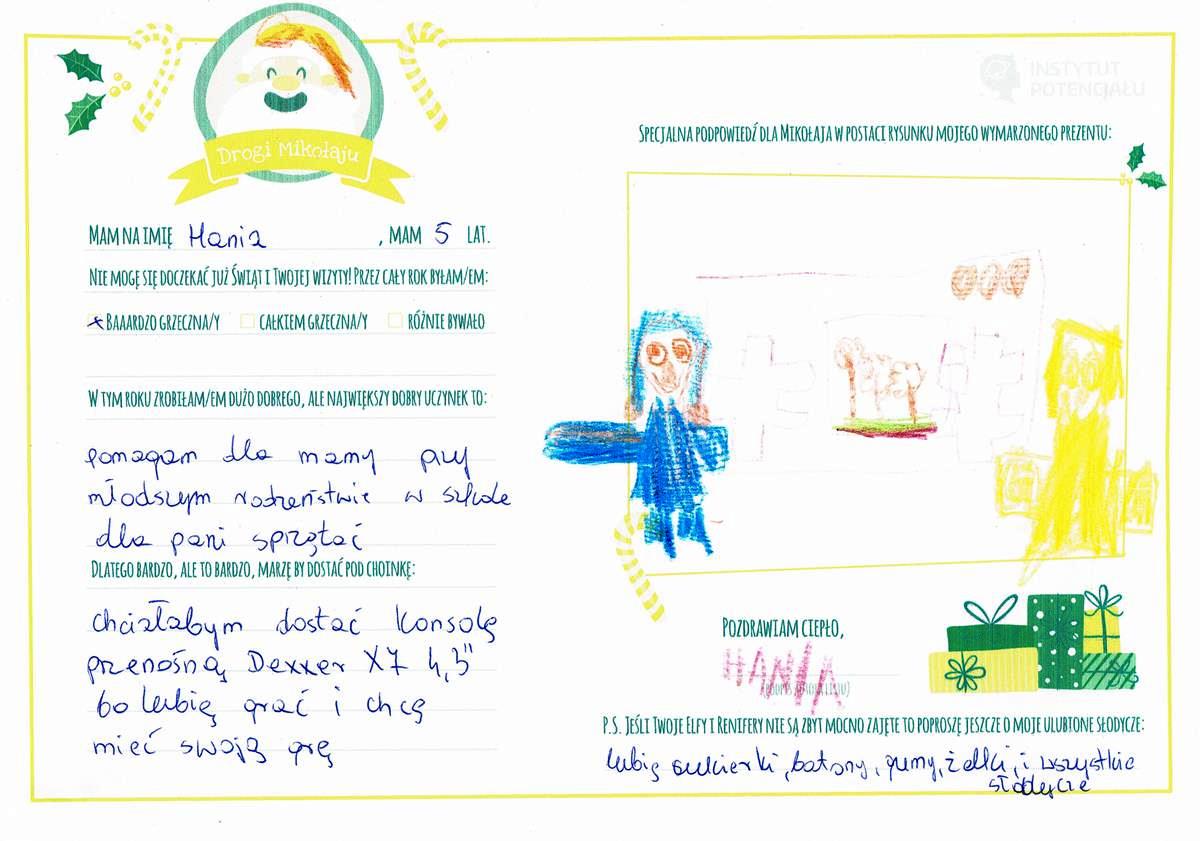 Drogi Mikołaju
MAM NA IMIĘ Hania , MAM 5 LAT.
NIE MOGĘ SIĘ DOCZEKAĆ JUŻ ŚWIĄT I TWOJEJ WIZYTY! PRZEZ CAŁY ROK BYŁAM/EM:
BAAARDZO GRZECZNA/Y CAŁKIEM GRZECZNA/Y RÓŻNIE BYWAŁO
W TYM ROKU ZROBIŁAM/EM DUŻO DOBREGO, ALE NAJWIĘKSZY DOBRY UCZYNEK TO:
pomagam dla mamy przy
młodszym rodzeństwie w szkole
dla pani sprzątać
DLATEGO BARDZO, ALE TO BARDZO, MARZĘ BY DOSTAĆ POD CHOINKĘ:
chciałabym dostać Konsolę
przenośną Dexxer X7 4,3"
bo lubię grać i chcę
mieć swoją grę
INSTYTUT
POTENCJAŁU
SPECJALNA PODPOWIEDŹ DLA MIKOŁAJA W POSTACI RYSUNKU MOJEGO WYMARZONEGO PREZENTU:
POZDRAWIAM CIEPŁO,
HANIA
P.S. JEŚLI TWOJE ELFY I RENIFERY NIE SĄ ZBYT MOCNO ZAJĘTE TO POPROSZĘ JESZCZE O MOJE ULUBIONE SŁODYCZE:
lubię cukierki, batony, gumy, żelki, i wszystkie
słodycze